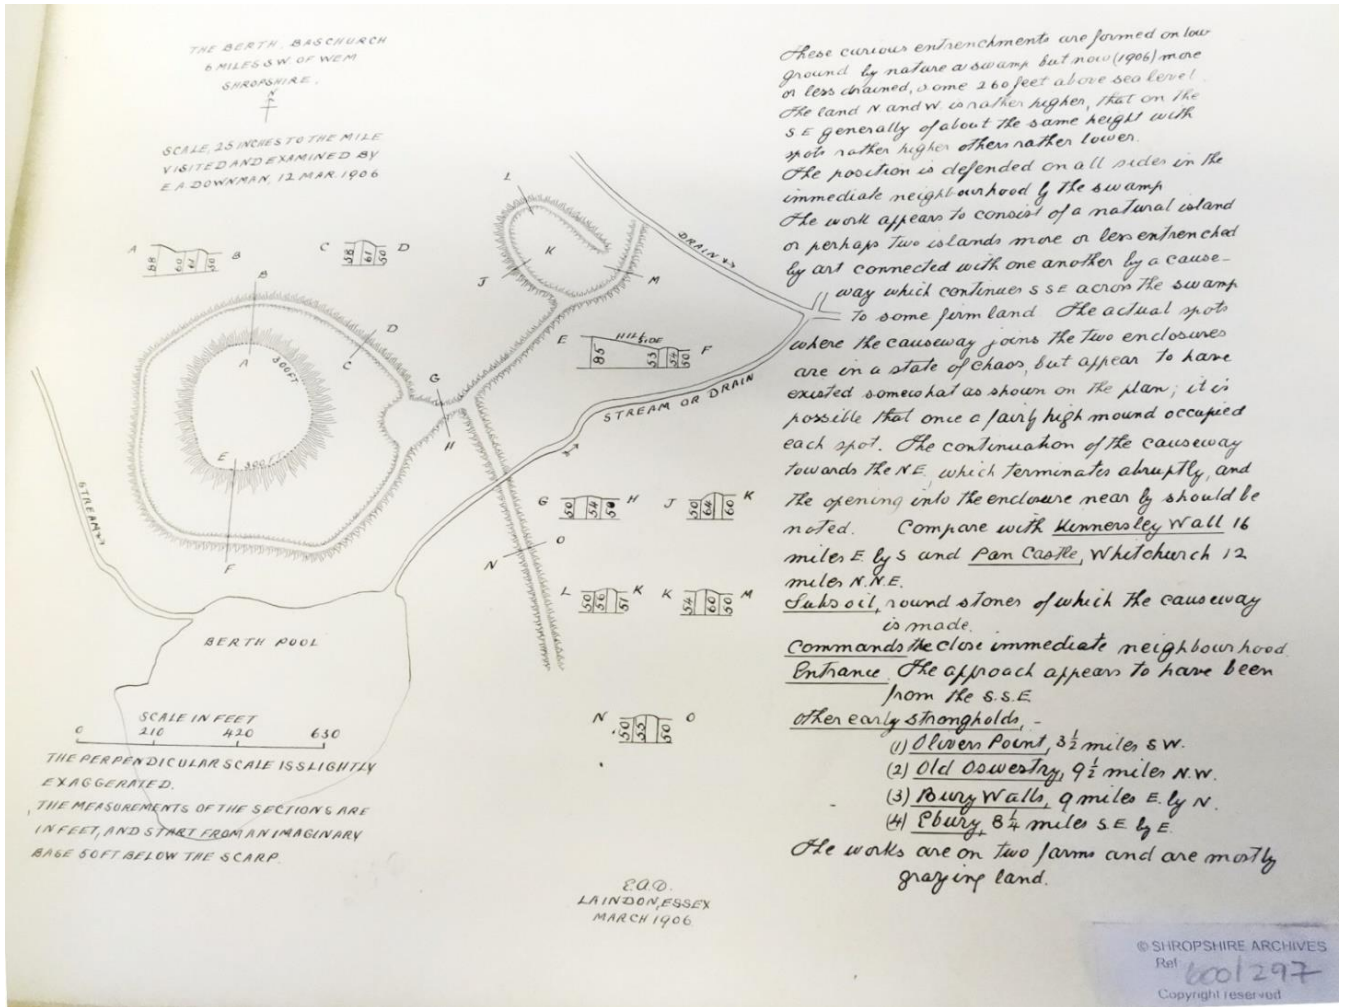 THE BERTH, BASCHURCH
6 MILES S.W. OF WEM
SHROPSHIRE.
N
SCALE, 25 INCHES TO THE MILE
VISITED AND EXAMINED BY
E.A.DOWNMAN, 12 MAR. 1906
A
88
60
61
50
B
C
58
61
50
D
B
D
C
A
300FT.
E
300FT.
F
G
H
L
K
J
M
DRAIN
E
HILLSIDE
85
53
54
50
F
STREAM OR DRAIN
STREAM
G
50
54
50
H
J
50
64
60
K
N
O
L
50
56
51
K
K
54
60
50
M
N
50
55
50
O
BERTH POOL
SCALE IN FEET
0 210 420 630
THE PERPENDICULAR SCALE IS SLIGHTLY
EXAGGERATED.
THE MEASUREMENTS OF THE SECTIONS ARE
IN FEET, AND START FROM AN IMAGINARY
BASE 50FT BELOW THE SCARP.
E.A.D.
LAINDON, ESSEX
MARCH 1906
These curious entrenchments are formed on low
ground by nature a swamp but now (1906) more
or less drained, some 260 feet above sea level.
The land N and W. is rather higher, that on the
S E generally of about the same height with
spots rather higher others rather lower.
The position is defended on all sides in the
immediate neighbourhood by the swamp
The work appears to consist of a natural island
or perhaps two islands more or less entrenched
by art connected with one another by a cause-
way which continues S S E across the swamp
to some firm land. The actual spots
where the causeway joins the two enclosures
are in a state of chaos, but appear to have
existed somewhat as shown on the plan; it is
possible that once a fairly high mound occupied
each spot. The continuation of the causeway
towards the N E, which terminates abruptly, and
the opening into the enclosure near by should be
noted. Compare with Kinnersley Wall 16
miles E. by S and Pan Castle, Whitchurch 12
miles N.N.E.
Subsoil, round stones of which the causeway
is made.
Commands the close immediate neighbourhood.
Entrance. The approach appears to have been
from the S.S.E
other early strongholds, -
(1) Olivers Point, 3½ miles SW.
(2) Old Oswestry, 9½ miles N.W.
(3) Bury Walls, 9 miles E. by N.
(4) Ebury, 8¼ miles S.E by E.
The works are on two farms and are mostly
grazing land.
© SHROPSHIRE ARCHIVES
Ref 6001297
Copyright reserved